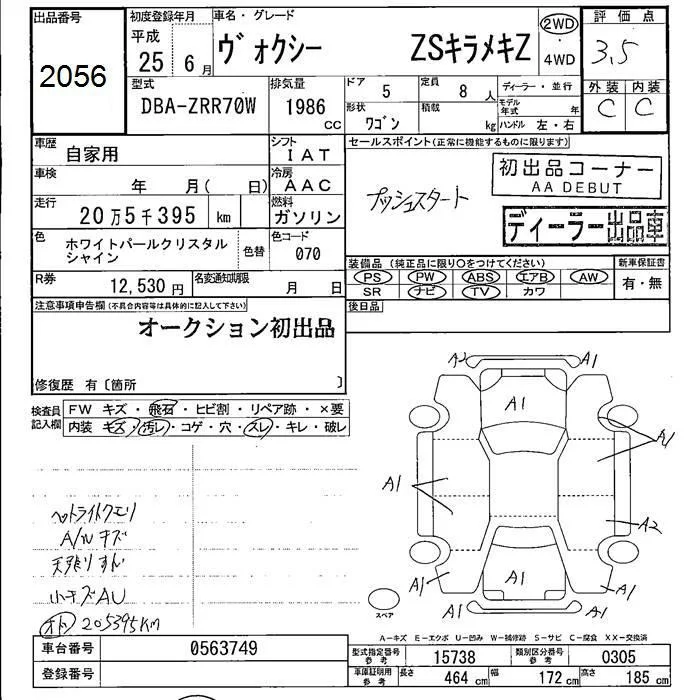 出品番号 初度登録年月 車名・グレード 評価点
2056 平成 25 6月 ヴォクシー ZSキラメキZ 2WD・4WD 3.5
型式 排気量 ドア 5 定員 8人 ディーラー・並行 外装 内装
DBA-ZRR70W 1986 CC 形状 ワゴン 積載 kg モデル年式 年 ハンドル 左・右 C C
車歴 自家用 シフト IAT セールスポイント(正常に機能するものに限ります)
車検 年 月( 日) 冷房 AAC プッシュスタート 初出品コーナー
AA DEBUT
走行 20万5千395 km 燃料 ガソリン ディーラー出品車
色 ホワイトパールクリスタル 色替 色コード
シャイン 070
装備品(純正品に限り○をつけてください) 新車保証書
R券 12,530円 名変通知期限 月 日 PS PW ABS エアB AW 有・無
SR ナビ TV カワ
注意事項申告欄(不具合内容等は具体的に記入して下さい) 後日品
オークション初出品
修復歴 有〔箇所 〕
検査員 FW キズ・飛石・ヒビ割・リペア跡・×要
記入欄 内装 キズ・汚レ・コゲ・穴・スレ・キレ・破レ
A2 A1
A1
A1
A1
A1
A2
A1 A1 A1
A1 A1
スペア
ヘットライトクモリ
A/W キズ
天張りすれ
小キズAU
オト 205395KM
A-キズ E-エクボ U-凹み W-補修跡 S-サビ C-腐食 XX-交換済
車台番号 0563749 型式指定番号 参考 15738 類別区分番号 参考 0305
登録番号 車庫証明用 参考 長さ 464 cm 幅 172 cm 高さ 185 cm